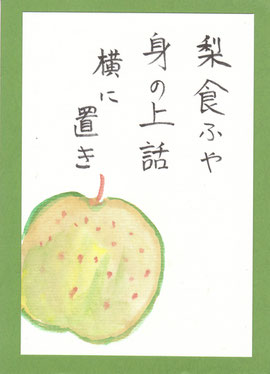 梨食ふや
身の上話
横に置き